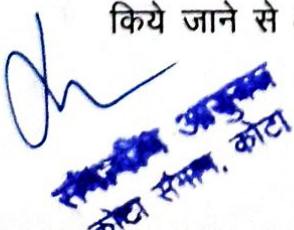 किये जाने से
आयुक्त
कोटा संभाग, कोटा